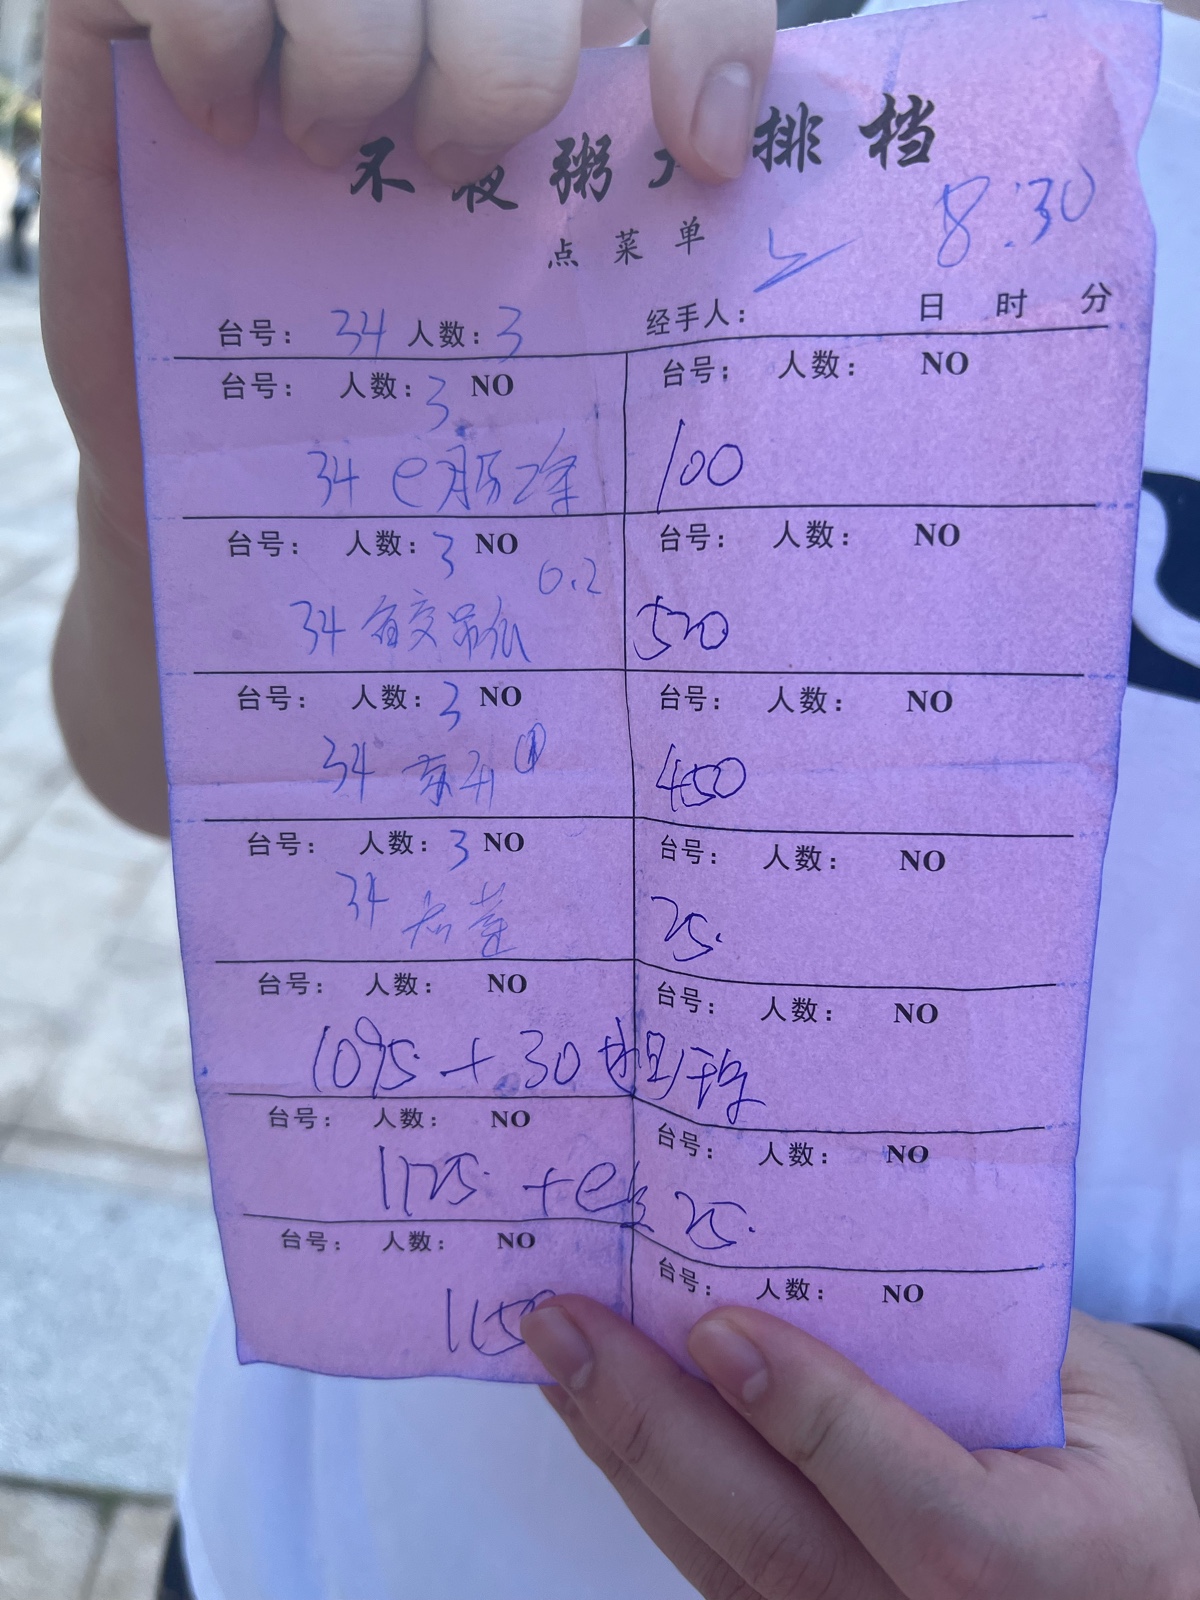 不夜粥 排档
点菜单
8:30
台号： 34 人数：3 经手人： 日 时 分
台号： 人数：3 NO
34
台号： 人数： NO
100
台号： 人数：3 NO
0.2
34
台号： 人数： NO
520
台号： 人数：3 NO
34
台号： 人数： NO
450
台号： 人数：3 NO
34
台号： 人数： NO
25.
台号： 人数： NO
台号： 人数： NO
1095. + 30
台号： 人数： NO
台号： 人数： NO
1125. + 25.
台号： 人数： NO
台号： 人数： NO